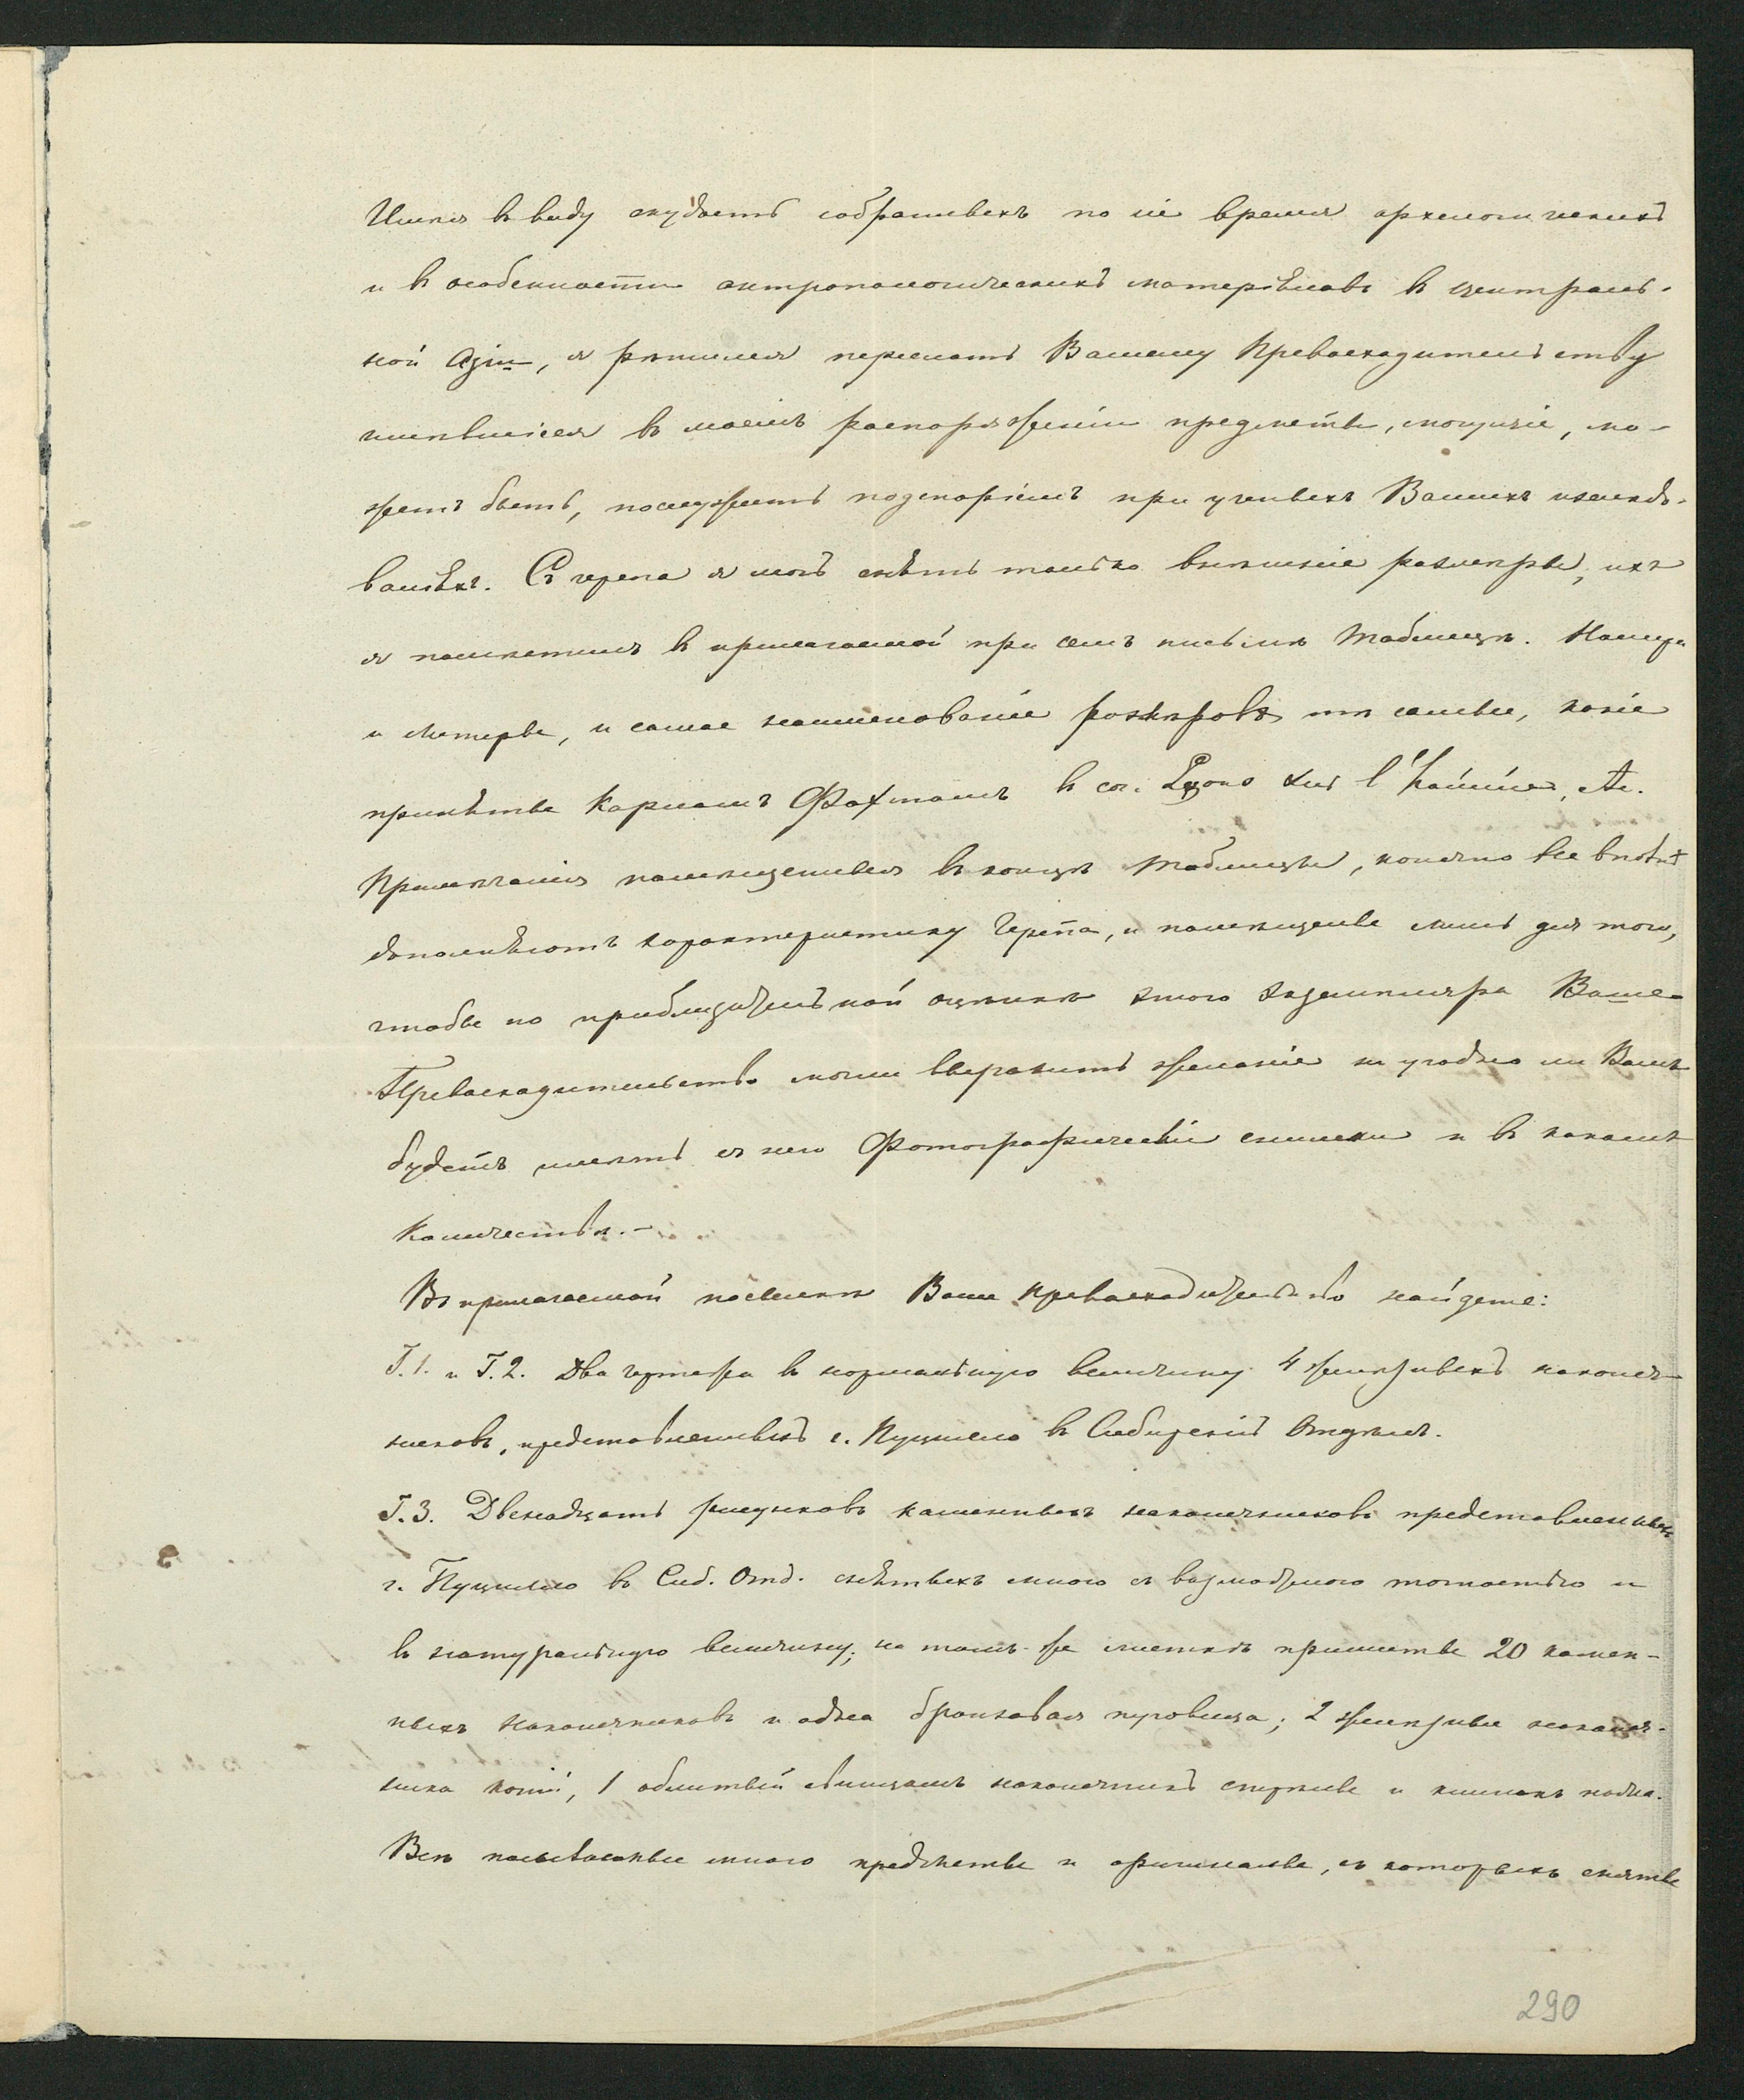 Имѣя въ виду скудость собранныхъ по сіе время археологическихъ
и въ особенности антропологическихъ матеріаловъ въ централь-
ной Азіи, я рѣшился переслать Вашему Превосходительству
имѣвшіеся въ моемъ распоряженіи предметы, могущіе, мо-
жетъ быть, послужить подспоріемъ при ученыхъ Вашихъ изслѣдо-
ваніяхъ. Съ черепа я могъ снять только внѣшніе размѣры, ихъ
я помѣстилъ въ прилагаемой при семъ письмѣ таблицѣ.
и литеры, и самое наименованіе размѣровъ тѣ самые, какіе
приняты Карломъ Фохтомъ въ соч. Leçons sur l'homme, etc.
Примѣчанія помѣщенныя въ концѣ таблицы, конечно не вполнѣ
дополняютъ характеристику черепа, и помѣщены лишь для того,
чтобы по приблизительной оцѣнкѣ этого экземпляра Ваше
Превосходительство могли выразить желаніе не угодно ли Вамъ
будетъ имѣть съ него фотографическіе снимки и въ какомъ
количествѣ.-
Въ прилагаемой посылкѣ Ваше Превосходительство найдете:
Г.1. и Г.2. Два чертежа въ нормальную величину 4 желѣзныхъ наконеч-
никовъ, представленныхъ г. Пуцилло въ Сибирскій Отдѣлъ.
Г.3. Двенадцать рисунковъ каменныхъ наконечниковъ представленныхъ
г. Пуцилло въ Сиб. Отд. снятыхъ мною съ возможною точностію и
въ натуральную величину; на томъ-же листкѣ пришиты 20 камен-
ныхъ наконечниковъ и одна бронзовая пуговица; 2 желѣзные наконеч-
ника копій, 1 облитый свинцомъ наконечникъ стрѣлы и клинокъ ножа.
Всѣ посылаемые мною предметы и оригиналы, съ которыхъ сняты
290